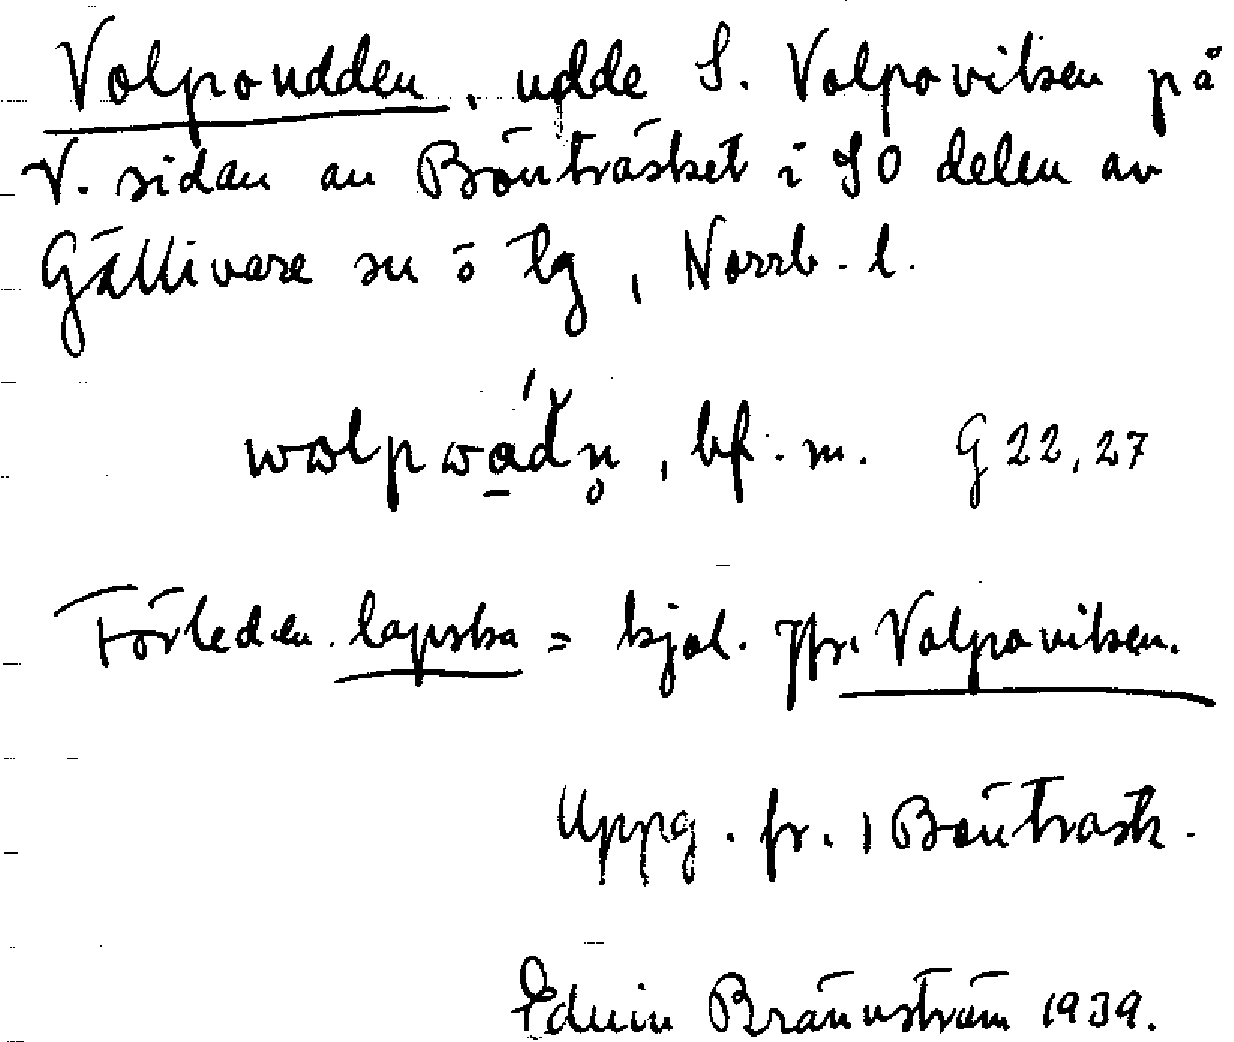 Volpoudden, udde S. Volpoviken på
V. sidan av Bönträsket i SO delen av
Gällivare sn ö lg, Norrb. l.
bf. m. G 22, 27
Förleden lapska = kjol. Jfr. Volpoviken.
Uppg. fr. Bönträsk.
Edvin Brännström 1939.